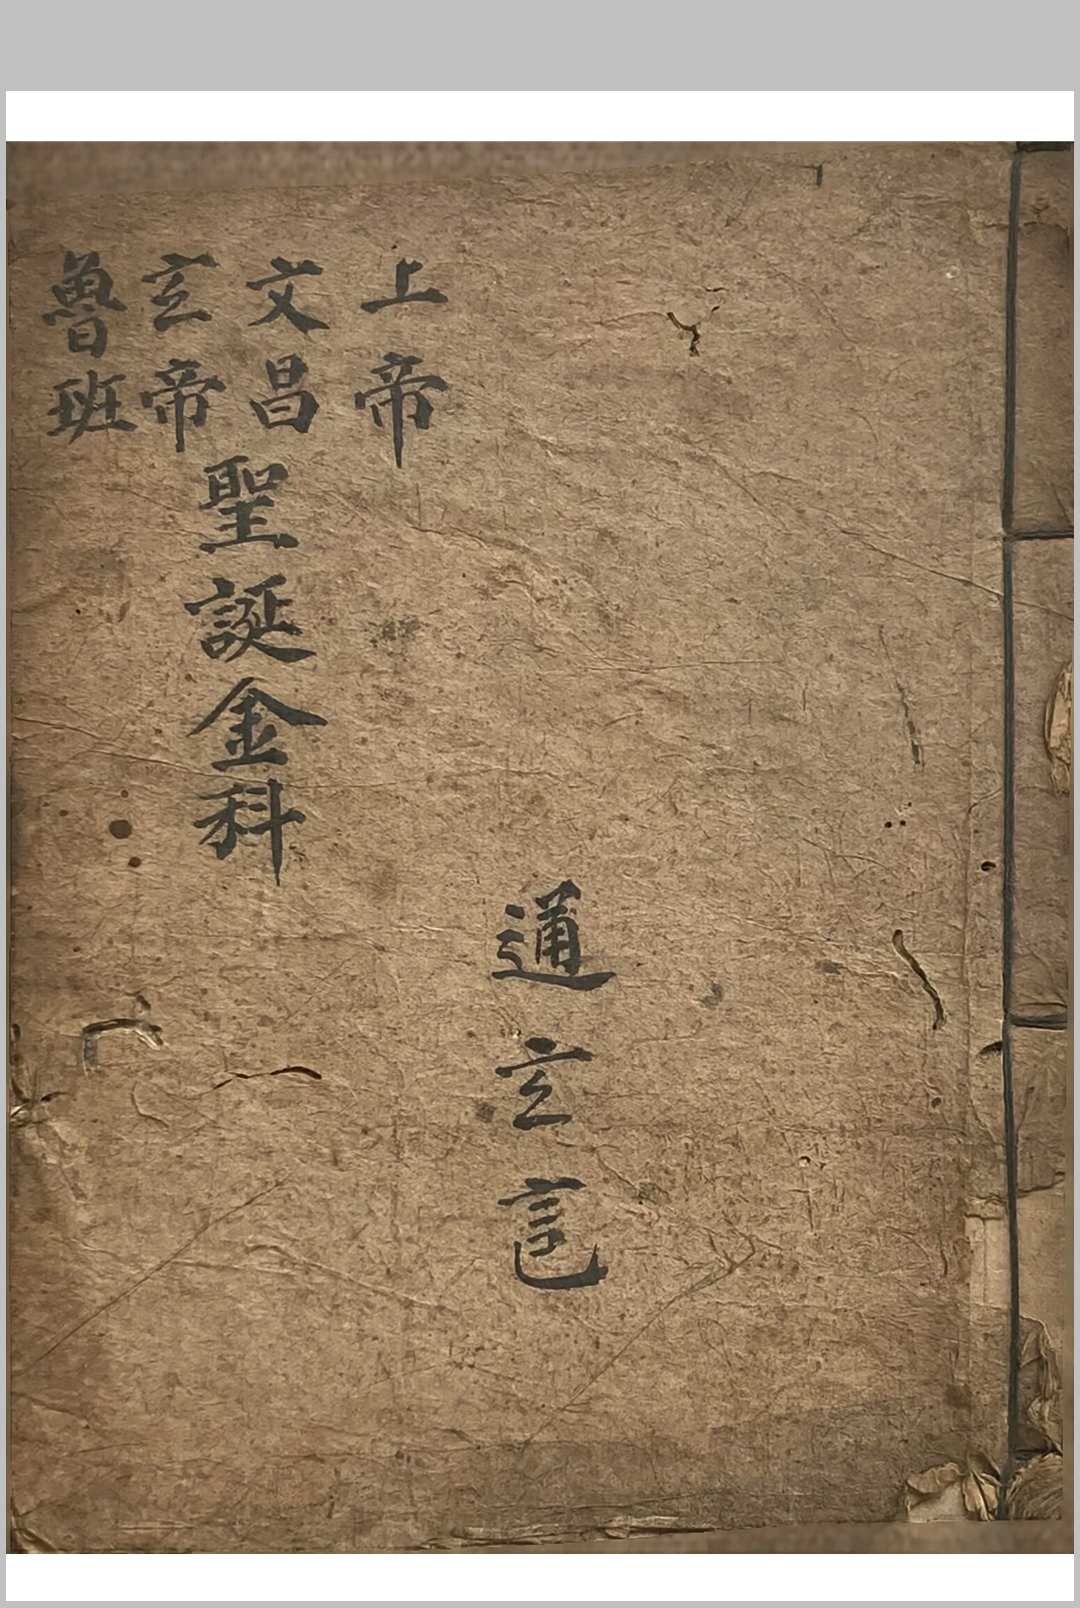 上帝
文昌
玄帝
魯班
聖誕金科
通玄